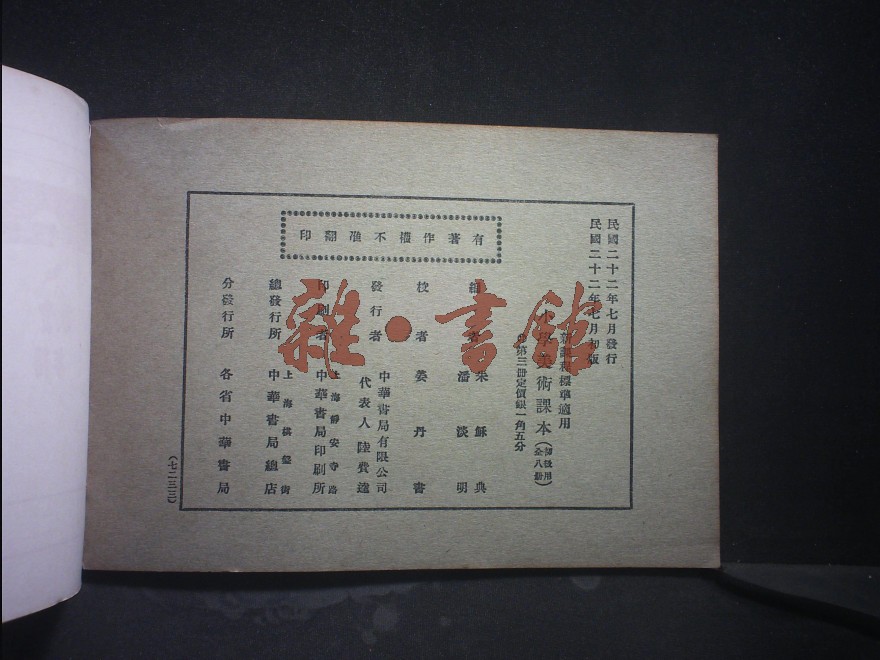 民國二十二年七月發行
民國二十二年七月初版
新課程標準適用
小學美術課本(初級用全八册)
第三册定價銀一角五分
有著作權不准翻印
編者 朱穌典
潘淡明
校者 姜丹書
發行者 中華書局有限公司
代表人 陸費逵
印刷者 上海靜安寺路
中華書局印刷所
總發行所 上海棋盤街
中華書局總店
分發行所 各省中華書局
(七二三三)
雜·書館